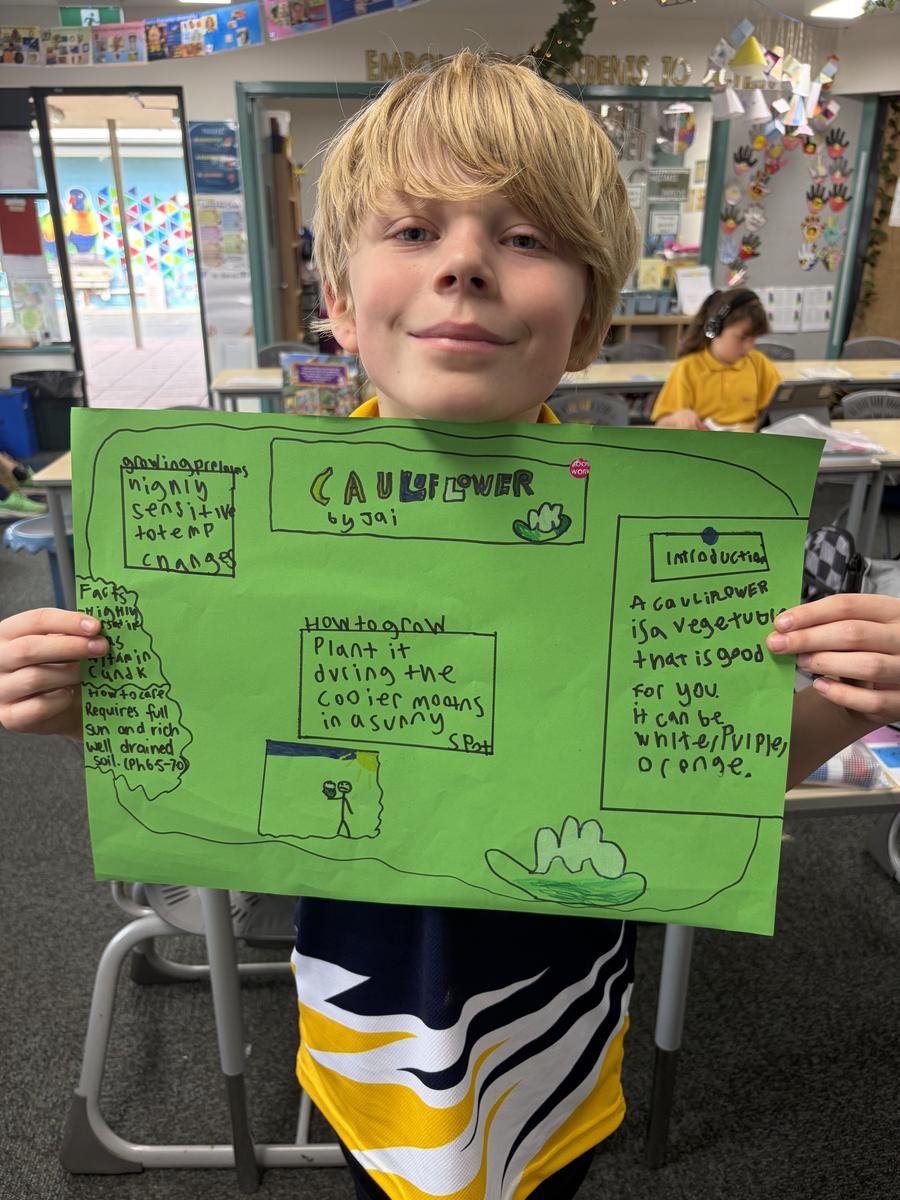 EMBOL
DENTS TO
CAULOFLOWER
by Jai
GOOD
WORK
growing preloms
highly
sensitive
to temp
changes
Facts
Highly
vitamin
C and K
How to care
Requires full
sun and rich
well drained
soil. (Ph 6.5-7.0)
How to grow
Plant it
during the
cooler moaths
in a sunny
spot
Introduction
A CAULIFLOWER
is a vegetuble
that is good
For you.
It can be
white, Purple,
Orenge.